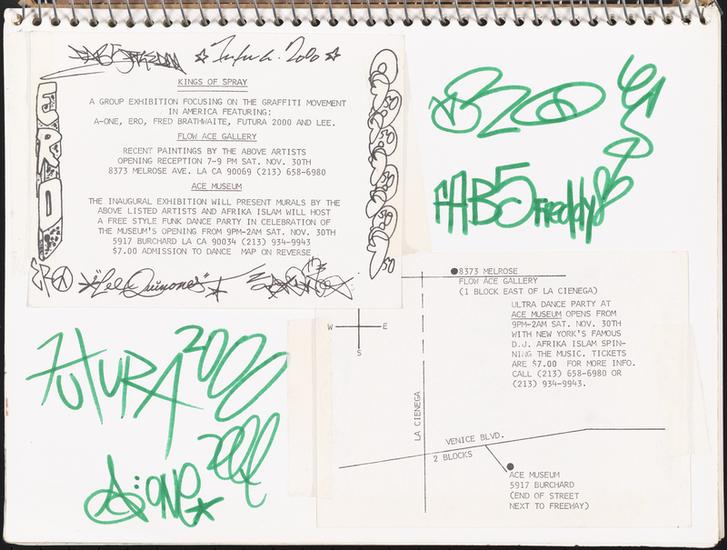 FAB 5 FREDDY ☆ Futura 2000 ☆
KINGS OF SPRAY
A GROUP EXHIBITION FOCUSING ON THE GRAFFITI MOVEMENT
IN AMERICA FEATURING:
A-ONE, ERO, FRED BRATHWAITE, FUTURA 2000 AND LEE.
FLOW ACE GALLERY
RECENT PAINTINGS BY THE ABOVE ARTISTS
OPENING RECEPTION 7-9 PM SAT. NOV. 30TH
8373 MELROSE AVE. LA CA 90069 (213) 658-6980
ACE MUSEUM
THE INAUGURAL EXHIBITION WILL PRESENT MURALS BY THE
ABOVE LISTED ARTISTS AND AFRIKA ISLAM WILL HOST
A FREE STYLE FUNK DANCE PARTY IN CELEBRATION OF
THE MUSEUM'S OPENING FROM 9PM-2AM SAT. NOV. 30TH
5917 BURCHARD LA CA 90034 (213) 934-9943
$7.00 ADMISSION TO DANCE MAP ON REVERSE
ERO
"Lee Quinones"
FAB5 Freddy
8373 MELROSE
FLOW ACE GALLERY
(1 BLOCK EAST OF LA CIENEGA)
W E
S
ULTRA DANCE PARTY AT
ACE MUSEUM OPENS FROM
9PM-2AM SAT. NOV. 30TH
WITH NEW YORK'S FAMOUS
D.J. AFRIKA ISLAM SPIN-
NING THE MUSIC. TICKETS
ARE $7.00 FOR MORE INFO.
CALL (213) 658-6980 OR
(213) 934-9943.
LA CIENEGA
VENICE BLVD.
2 BLOCKS
ACE MUSEUM
5917 BURCHARD
(END OF STREET
NEXT TO FREEWAY)
FUTURA 2000
A:ONE